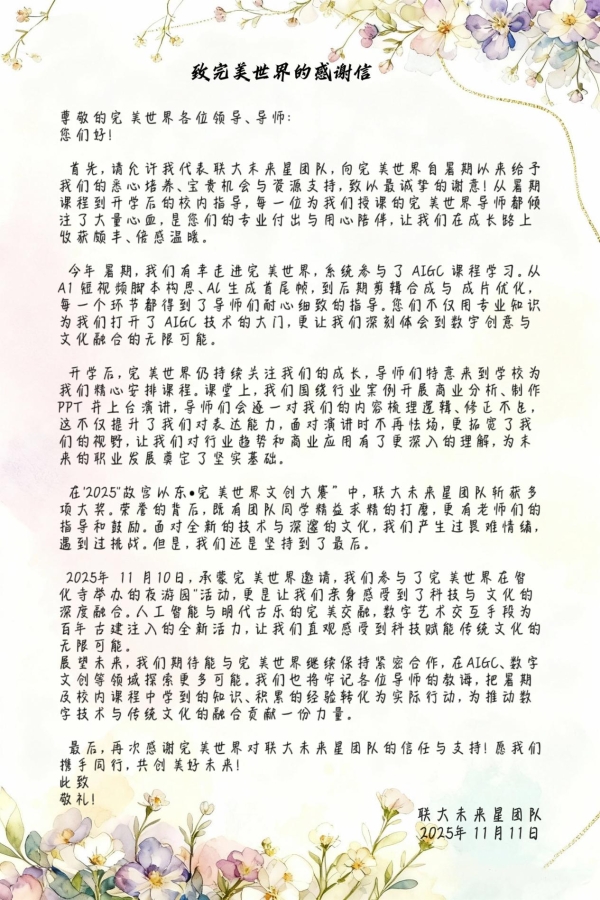 致完美世界的感谢信
尊敬的完美世界各位领导、导师:
您们好!
首先,请允许我代表联大未来星团队,向完美世界自暑期以来给予
我们的悉心培养、宝贵机会与资源支持,致以最诚挚的谢意!从暑期
课程到开学后的校内指导,每一位为我们授课的完美世界导师都倾
注了大量心血,是您们的专业付出与用心陪伴,让我们在成长路上
收获颇丰、倍感温暖。
今年暑期,我们有幸走进完美世界,系统参与了AIGC课程学习。从
AI短视频脚本构思、AI生成首尾帧,到后期剪辑合成与成片优化,
每一个环节都得到了导师们耐心细致的指导。您们不仅用专业知识
为我们打开了AIGC技术的大门,更让我们深刻体会到数字创意与
文化融合的无限可能。
开学后,完美世界仍持续关注我们的成长,导师们特意来到学校为
我们精心安排课程。课堂上,我们围绕行业案例开展商业分析、制作
PPT并上台演讲,导师们会逐一对我们的内容梳理逻辑、修正不足,
这不仅提升了我们对表达能力,面对演讲时不再怯场,更拓宽了我
们的视野,让我们对行业趋势和商业应用有了更深入的理解,为未
来的职业发展奠定了坚实基础。
在"2025"故宫以东•完美世界文创大赛”中,联大未来星团队斩获多
项大奖。荣誉的背后,既有团队同学精益求精的打磨,更有老师们的
指导和鼓励。面对全新的技术与深邃的文化,我们产生过畏难情绪,
遇到过挑战。但是,我们还是坚持到了最后。
2025年11月10日,承蒙完美世界邀请,我们参与了完美世界在智
化寺举办的夜游园"活动,更是让我们亲身感受到了科技与文化的
深度融合。人工智能与明代古乐的完美交融,数字艺术交互手段为
百年古建注入的全新活力,让我们直观感受到科技赋能传统文化的
无限可能。
展望未来,我们期待能与完美世界继续保持紧密合作,在AIGC、数字
文创等领域探索更多可能。我们也将牢记各位导师的教诲,把暑期
及校内课程中学到的知识、积累的经验转化为实际行动,为推动数
字技术与传统文化的融合贡献一份力量。
最后,再次感谢完美世界对联大未来星团队的信任与支持!愿我们
携手同行,共创美好未来!
此致
敬礼!
联大未来星团队
2025年11月11日